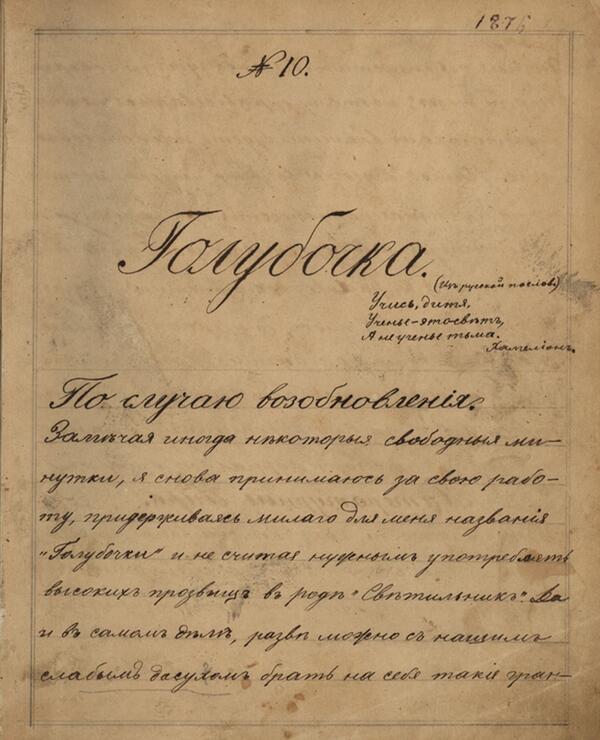 1876
№ 10.
Голубочка.
(Изъ русской послов.)
Учись, дитя,
Ученье – это свѣтъ,
А не ученье тьма.
Хамелiонъ.
По случаю возобновленiя.
Замѣчая иногда нѣкоторыя свободныя ми–
нутки, я снова принимаюсь за свою рабо–
ту, придерживаясь милаго для меня названiя
"Голубочки" и не считая нужнымъ употреблять
высокихъ прозвищъ въ родѣ "Свѣтильникъ". Да
и въ самомъ дѣлѣ, развѣ можно съ нашимъ
слабымъ досухомъ брать на себя такiе гран–